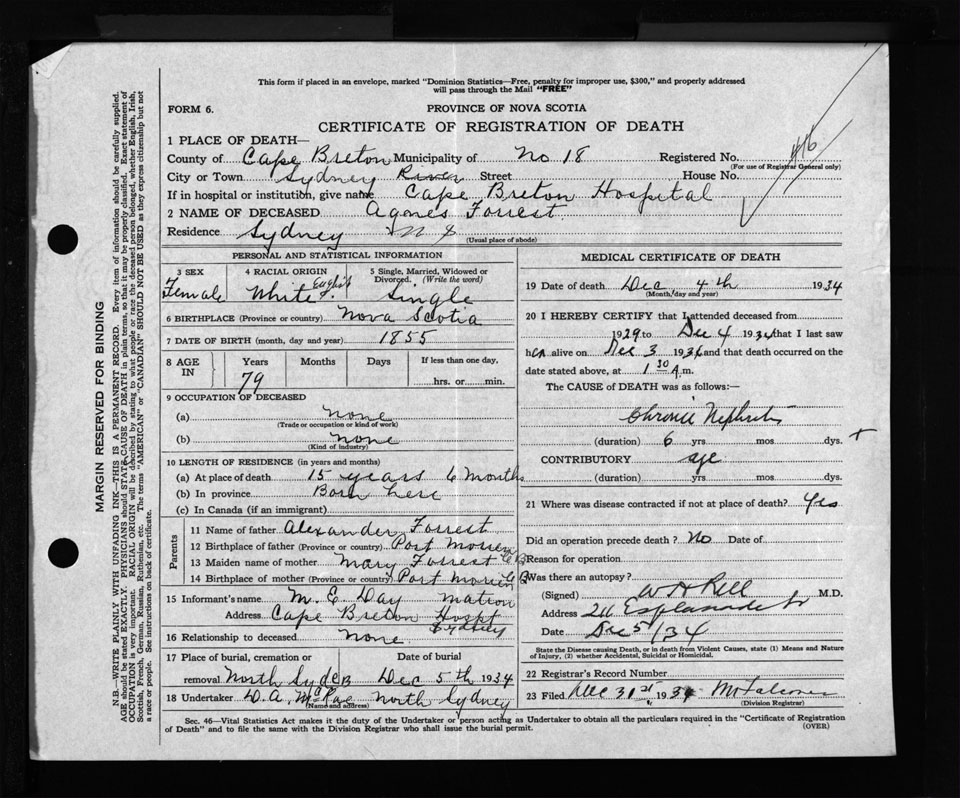 This form if placed in an envelope, marked "Dominion Statistics—Free, penalty for improper use, $300," and properly addressed
will pass through the Mail "FREE"
FORM 6.
PROVINCE OF NOVA SCOTIA
CERTIFICATE OF REGISTRATION OF DEATH
1 PLACE OF DEATH—
County of Cape Breton Municipality of No 18 Registered No. 416
(For use of Registrar General only)
City or Town Sydney River Street House No.
If in hospital or institution, give name Cape Breton Hospital
2 NAME OF DECEASED Agnes Forrest
Residence Sydney N S
(Usual place of abode)
PERSONAL AND STATISTICAL INFORMATION
3 SEX 4 RACIAL ORIGIN 5 Single, Married, Widowed or Divorced. (Write the word)
Female White English Single
6 BIRTHPLACE (Province or country) Nova Scotia
7 DATE OF BIRTH (month, day and year) 1855
8 AGE IN Years Months Days If less than one day,
79 hrs. or min.
9 OCCUPATION OF DECEASED
(a) none
(Trade or occupation or kind of work)
(b) none
(Kind of industry)
10 LENGTH OF RESIDENCE (in years and months)
(a) At place of death 15 years 6 Months
(b) In province Born here
(c) In Canada (if an immigrant)
Parents
11 Name of father Alexander Forrest
12 Birthplace of father (Province or country) Port Morien C B
13 Maiden name of mother Mary Forrest
14 Birthplace of mother (Province or country) Port Morien C B
15 Informant's name M. E. Day Matron
Address Cape Breton Hospt
Sydney
16 Relationship to deceased None
17 Place of burial, cremation or removal Date of burial
North Syd C B Dec 5th 1934
18 Undertaker D. A. McRae North Sydney
(Name and address)
MEDICAL CERTIFICATE OF DEATH
19 Date of death Dec 4th 1934
(Month, day and year)
20 I HEREBY CERTIFY that I attended deceased from
1929 to Dec 4 1934 that I last saw
her alive on Dec 3 1934 and that death occurred on the
date stated above, at 1 30 A.m.
The CAUSE of DEATH was as follows:—
Chronic Nephritis
(duration) 6 yrs. mos. dys.
CONTRIBUTORY age
(duration) yrs. mos. dys.
21 Where was disease contracted if not at place of death? Yes
Did an operation precede death? No Date of
Reason for operation
Was there an autopsy?
(Signed) M.D.
Address 211 Esplanade
Date Dec 5/34
State the Disease causing Death, or in death from Violent Causes, state (1) Means and Nature
of Injury, (2) whether Accidental, Suicidal or Homicidal.
22 Registrar's Record Number
23 Filed Dec 31st 1934
(Division Registrar)
Sec. 46—Vital Statistics Act makes it the duty of the Undertaker or person acting as Undertaker to obtain all the particulars required in the "Certificate of Registration
of Death" and to file the same with the Division Registrar who shall issue the burial permit.
(OVER)
MARGIN RESERVED FOR BINDING
N.B.—WRITE PLAINLY WITH UNFADING INK—THIS IS A PERMANENT RECORD. Every item of information should be carefully supplied.
AGE should be stated EXACTLY. PHYSICIANS should STATE CAUSE OF DEATH in plain terms, so that it may be properly classified. Exact statement of
OCCUPATION is very important. RACIAL ORIGIN will be described by stating to what people or race the deceased person belonged, whether English, Irish,
Scottish, French, German, Russian, Ruthenian, etc. The terms "AMERICAN" or "CANADIAN" SHOULD NOT BE USED as they express citizenship but not
a race or people. See instructions on back of certificate.